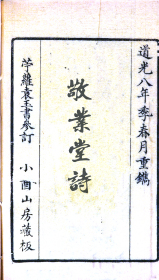 道光八年季春月重鐫
敬業堂詩
苧蘿袁玉書參訂
小酉山房藏板